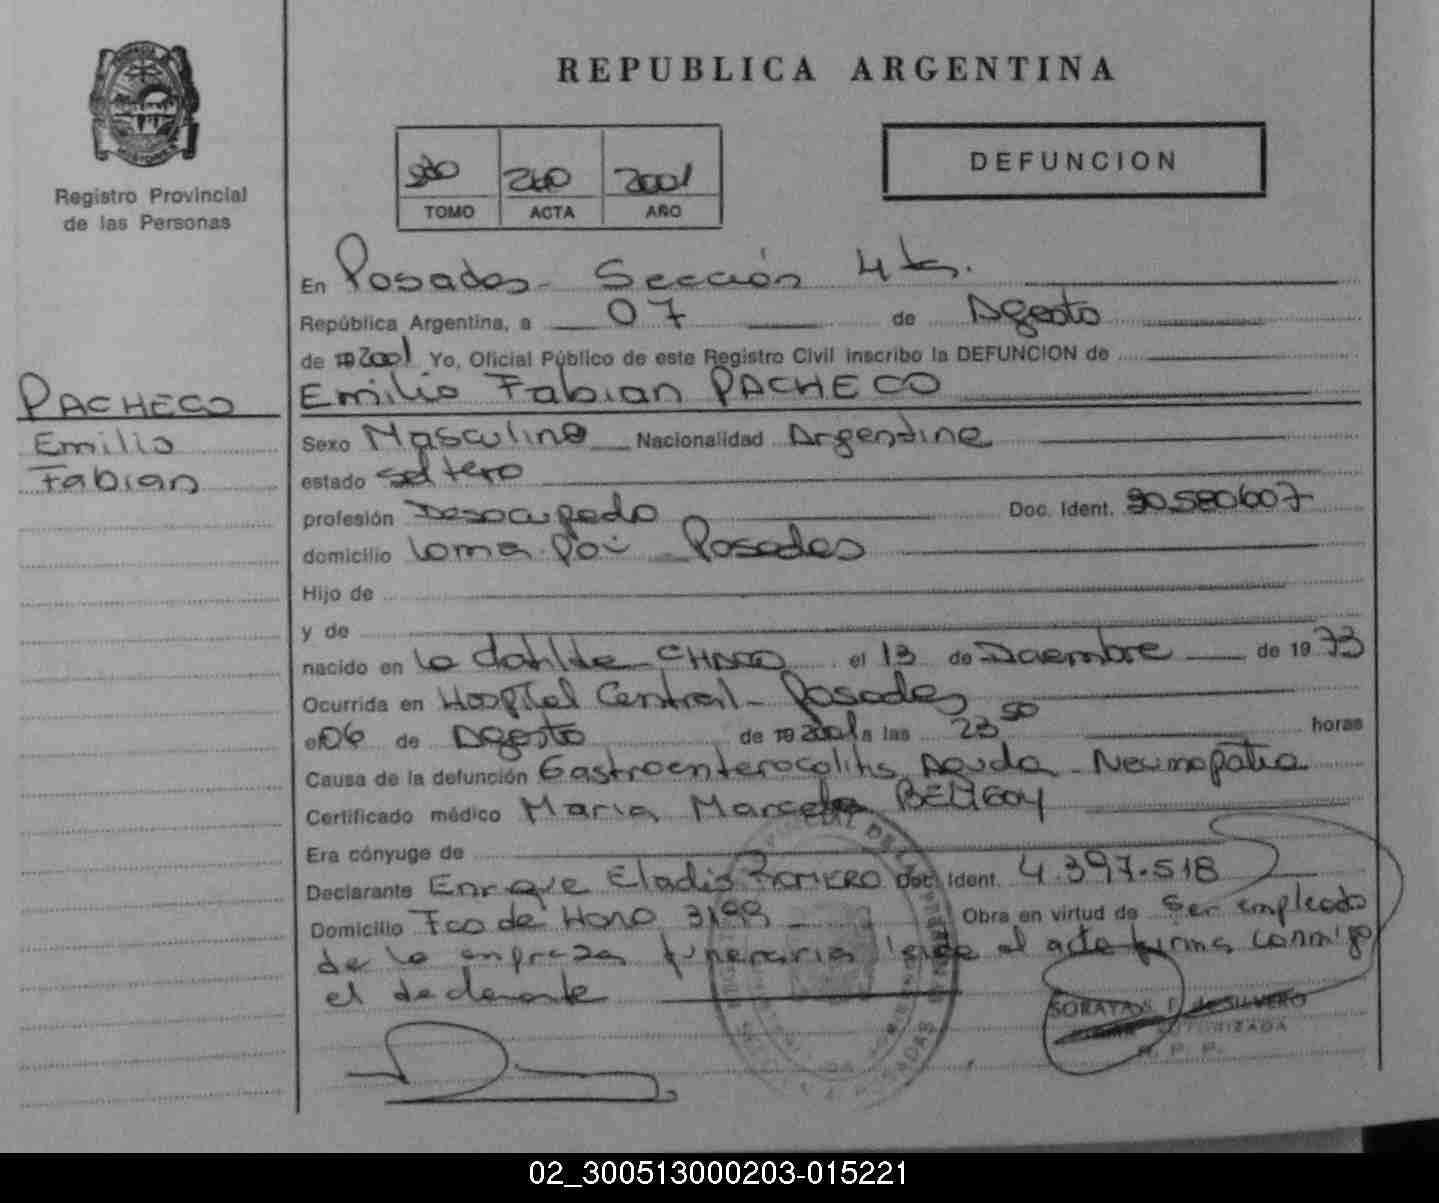 REPUBLICA ARGENTINA
DEFUNCION
Registro Provincial
de las Personas
240 2001
TOMO ACTA AÑO
En Posadas - Sección 4ta.
República Argentina, a 07 de Agosto
de 19 2001 Yo, Oficial Público de este Registro Civil inscribo la DEFUNCION de
Emilio Fabian PACHECO
PACHECO
Emilio
Fabian
Sexo Masculino Nacionalidad Argentina
estado soltero
profesión Desocupado Doc. Ident. 30.580.607
domicilio Loma Poi Posadas
Hijo de
y de
nacido en La CHACO el 13 de Diciembre de 1973
Ocurrida en Hospital Central - Posadas
el 06 de Agosto de 19 2001 a las 23 50 horas
Causa de la defunción Gastroenterocolitis Aguda - Neumopatia
Certificado médico Maria Marcela
Era cónyuge de
Declarante Enrique Eladio ROMERO Doc. Ident. 4.397.518
Domicilio Fco de Haro 3199 Obra en virtud de ser empleado
de la empresa funeraria el acta firma conmigo
el declarante
SORAYA DE SILVERO
AUTORIZADA
R. P. P.
02_300513000203-015221